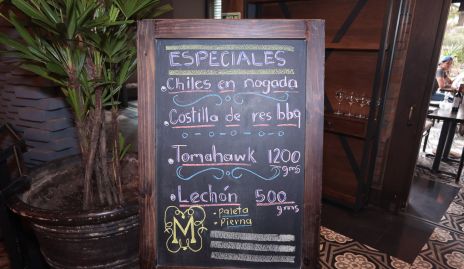 ESPECIALES
.Chiles en nogada
.Costilla de res bbq
.Tomahawk 1200 gms
.Lechón 500 gms
• Paleta
• Pierna
M